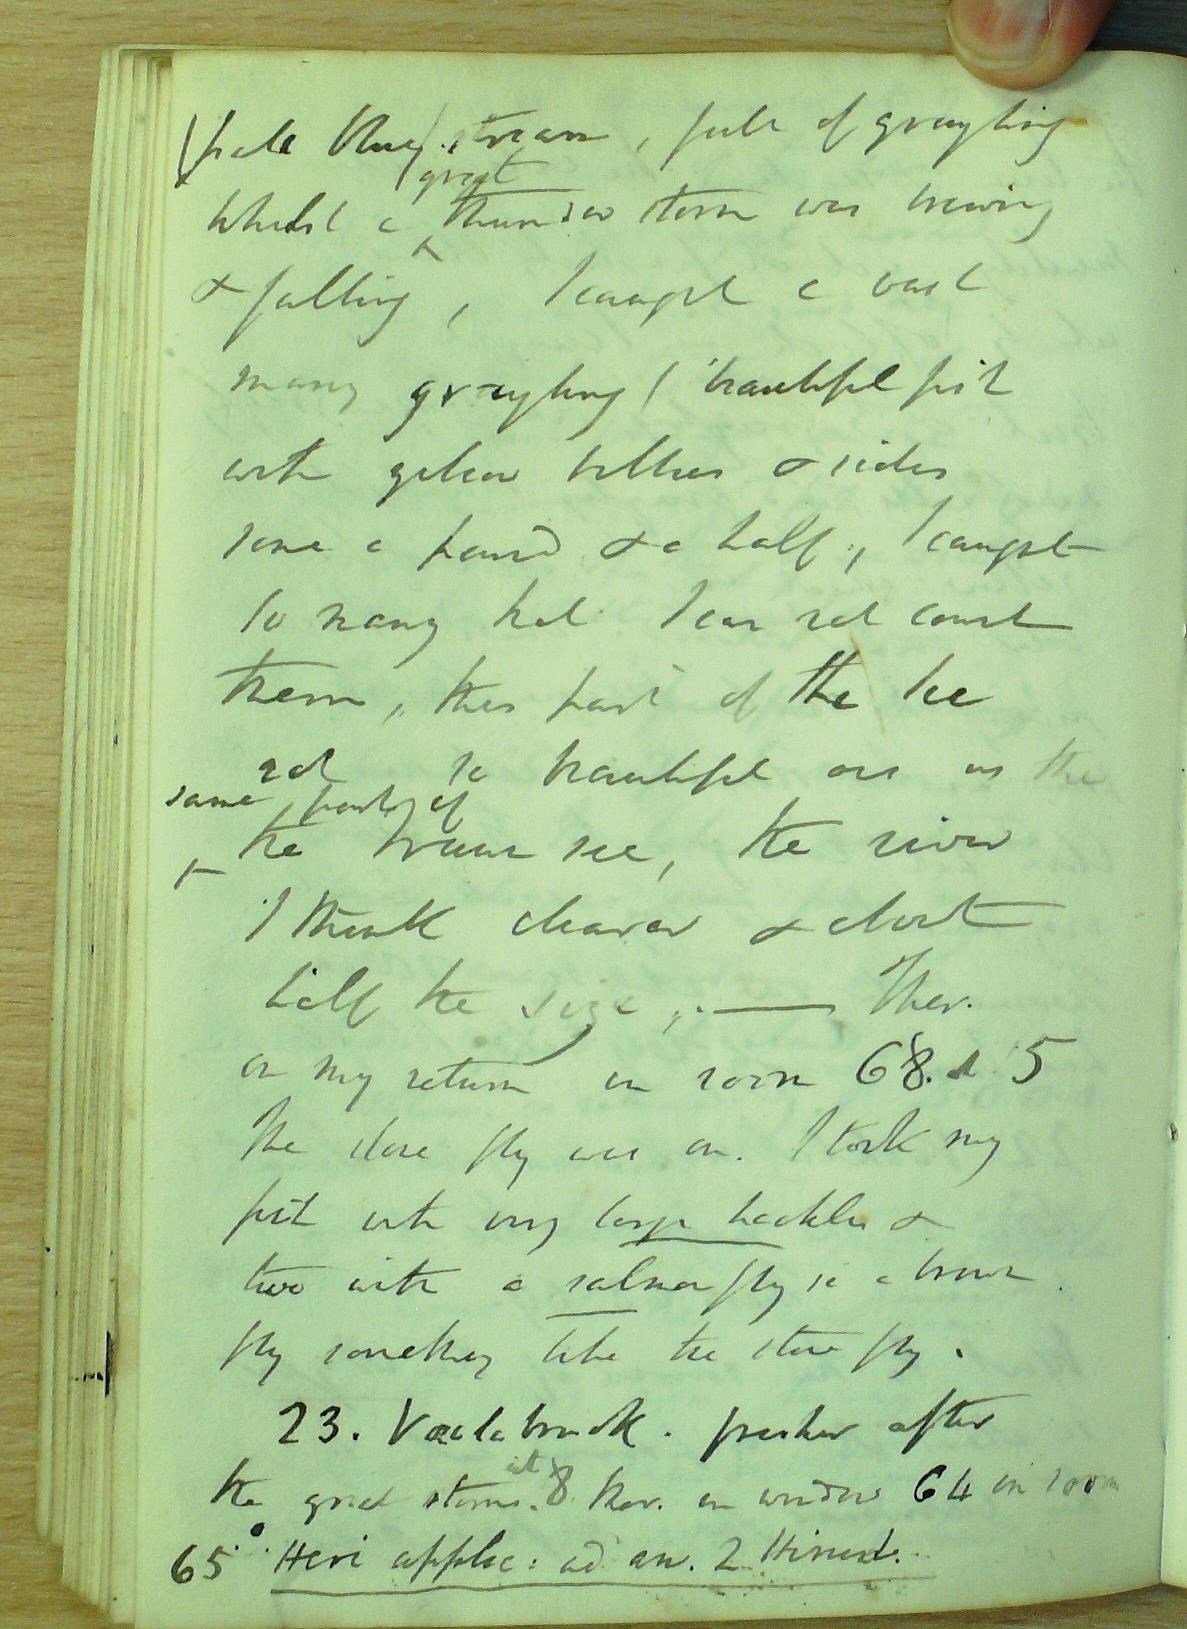 (pale blue) stream, full of grayling
great
whilst a ^ thunder storm was brewing
& falling, I caught a vast
many grayling / beautiful fish
with yellow bellies & sides
some a pound & a half, I caught
so many that I can not count
them, this part of the
not so beautiful as the
same part of
^ the Traun see, the river
I think clearer & about
half the size, — Ther.
on my return in room 68. at 5
The stone fly was on. I took my
fish with very large hackles &
two with a salmon fly ie a brown
fly something like the stone fly.
23. Vöcklabruck. fresher after
the great storm. at 8 ther. in window 64 in room
65° Heri applic: ad an. 2 Hirud.